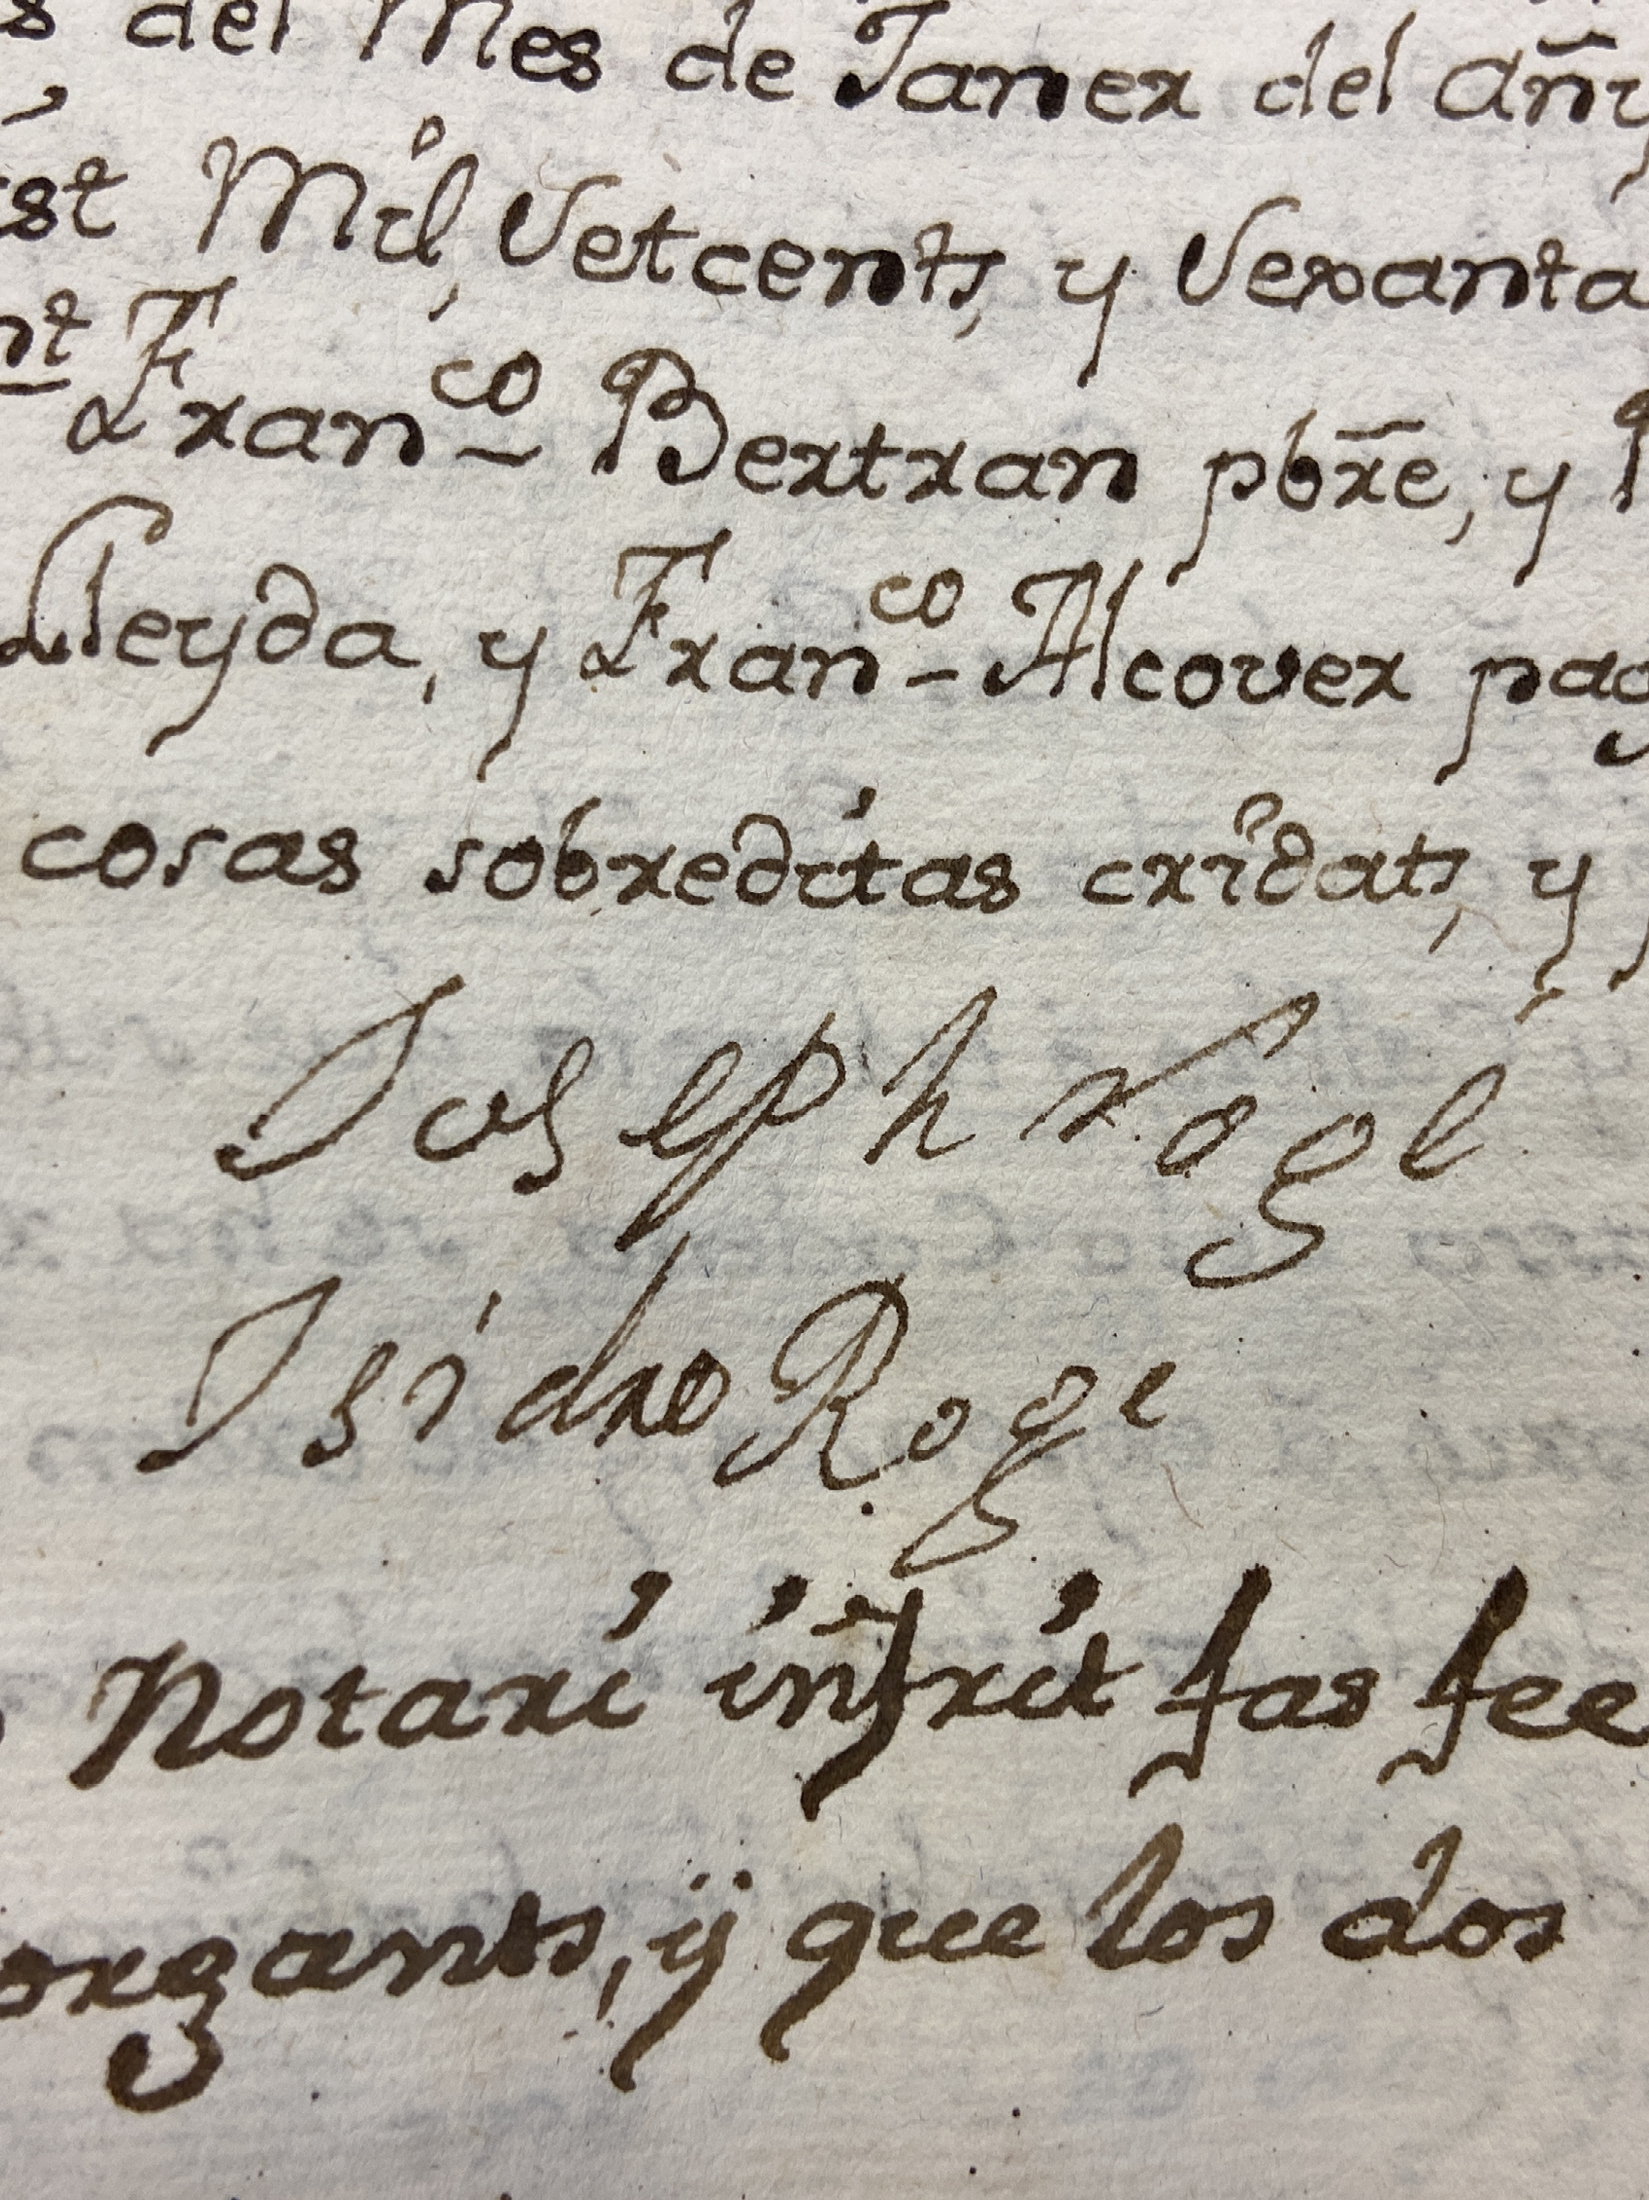 s del Mes de Janer del añy
ist Mil, Setcents, y Sexanta
nt Fran.co Bertran pbr̃e, y
Lleyda, y Fran.co Alcover pag
cosas sobreditas cridats, y
Joseph roge
Isidro Roge
Notari inf̃rit fas fee
organts, ÿ que los dos